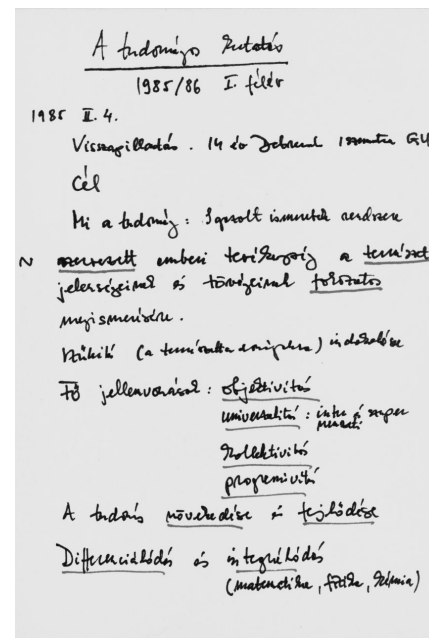 A tudományos kutatás
1985/86 I. félév
1985 II. 4.
Visszapillantás. 14 év Debrecen 1 szemeszter
Cél
Mi a tudomány: Igazolt ismeretek rendszere
~ szervezett emberi tevékenység a természet
jelenségeinek és törvényeinek folyamatos
megismerésére.
Szűkítő (a természettudományokra) indokolása
Fő jellemvonásai: objektivitás
univerzalitás: inter és szuper
nemzeti
kollektivitás
progresszivitás
A tudás növekedése és fejlődése
Differenciálódás és integrálódás
(matematika, fizika, kémia)